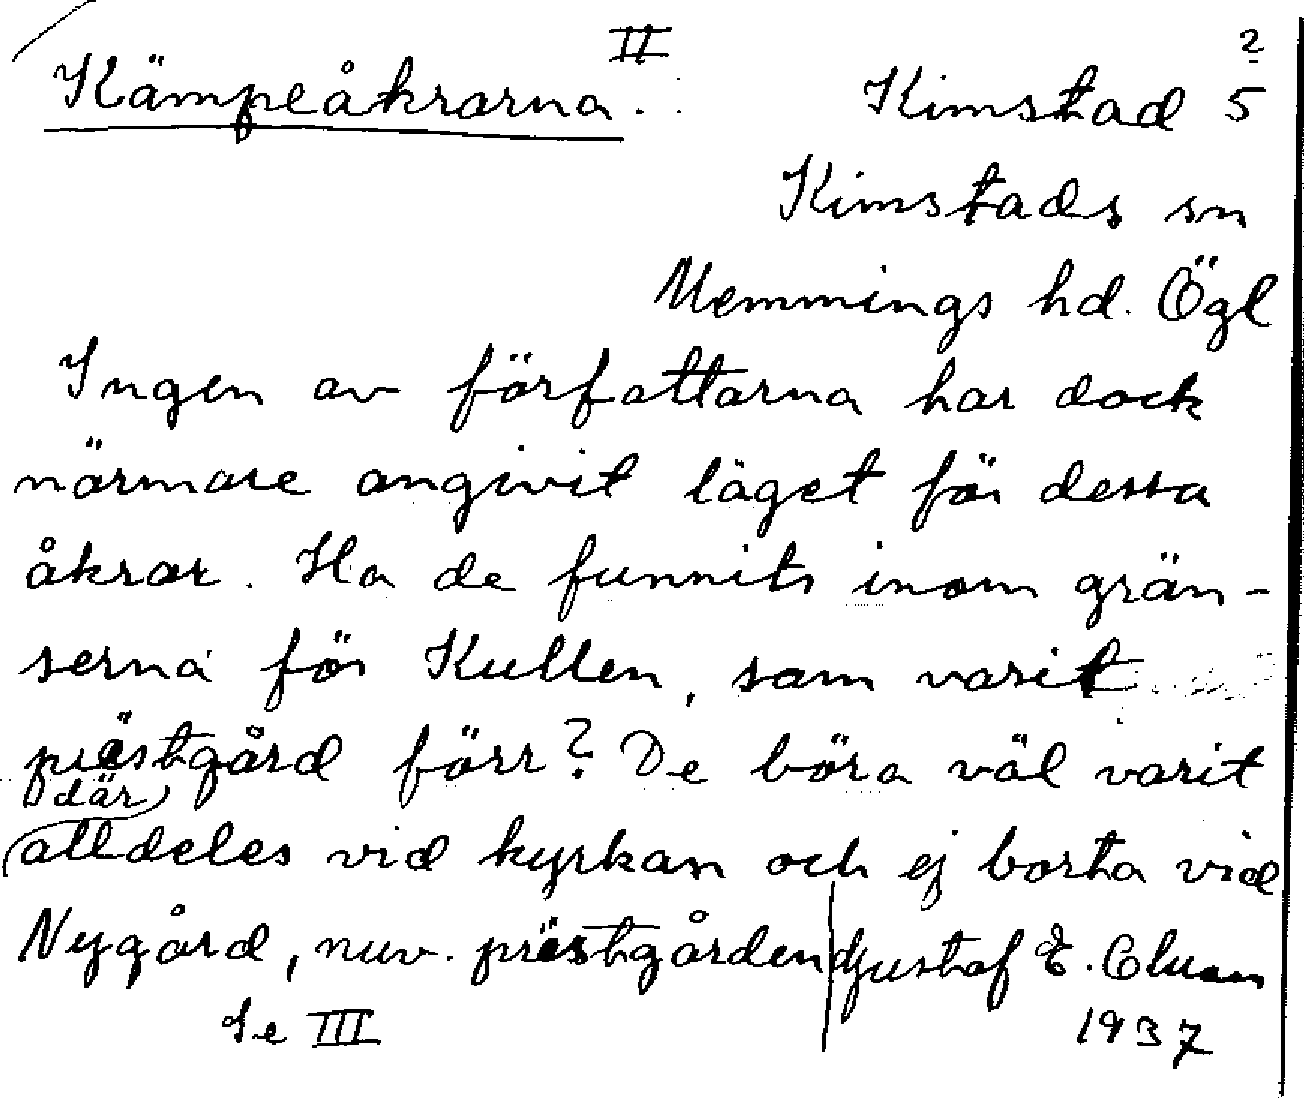 II
Kämpeåkrarna. Kimstad 5 2
Kimstads sn
Memmings hd. Ögl
Ingen av författarna har dock
närmare angivit läget för dessa
åkrar. Ha de funnits inom grän-
serna för Kullen, som varit
prästgård förr? De böra väl varit
där
alldeles vid kyrkan och ej borta vid
Nygård, nuv. prästgården Gustaf E.
Se III 1937